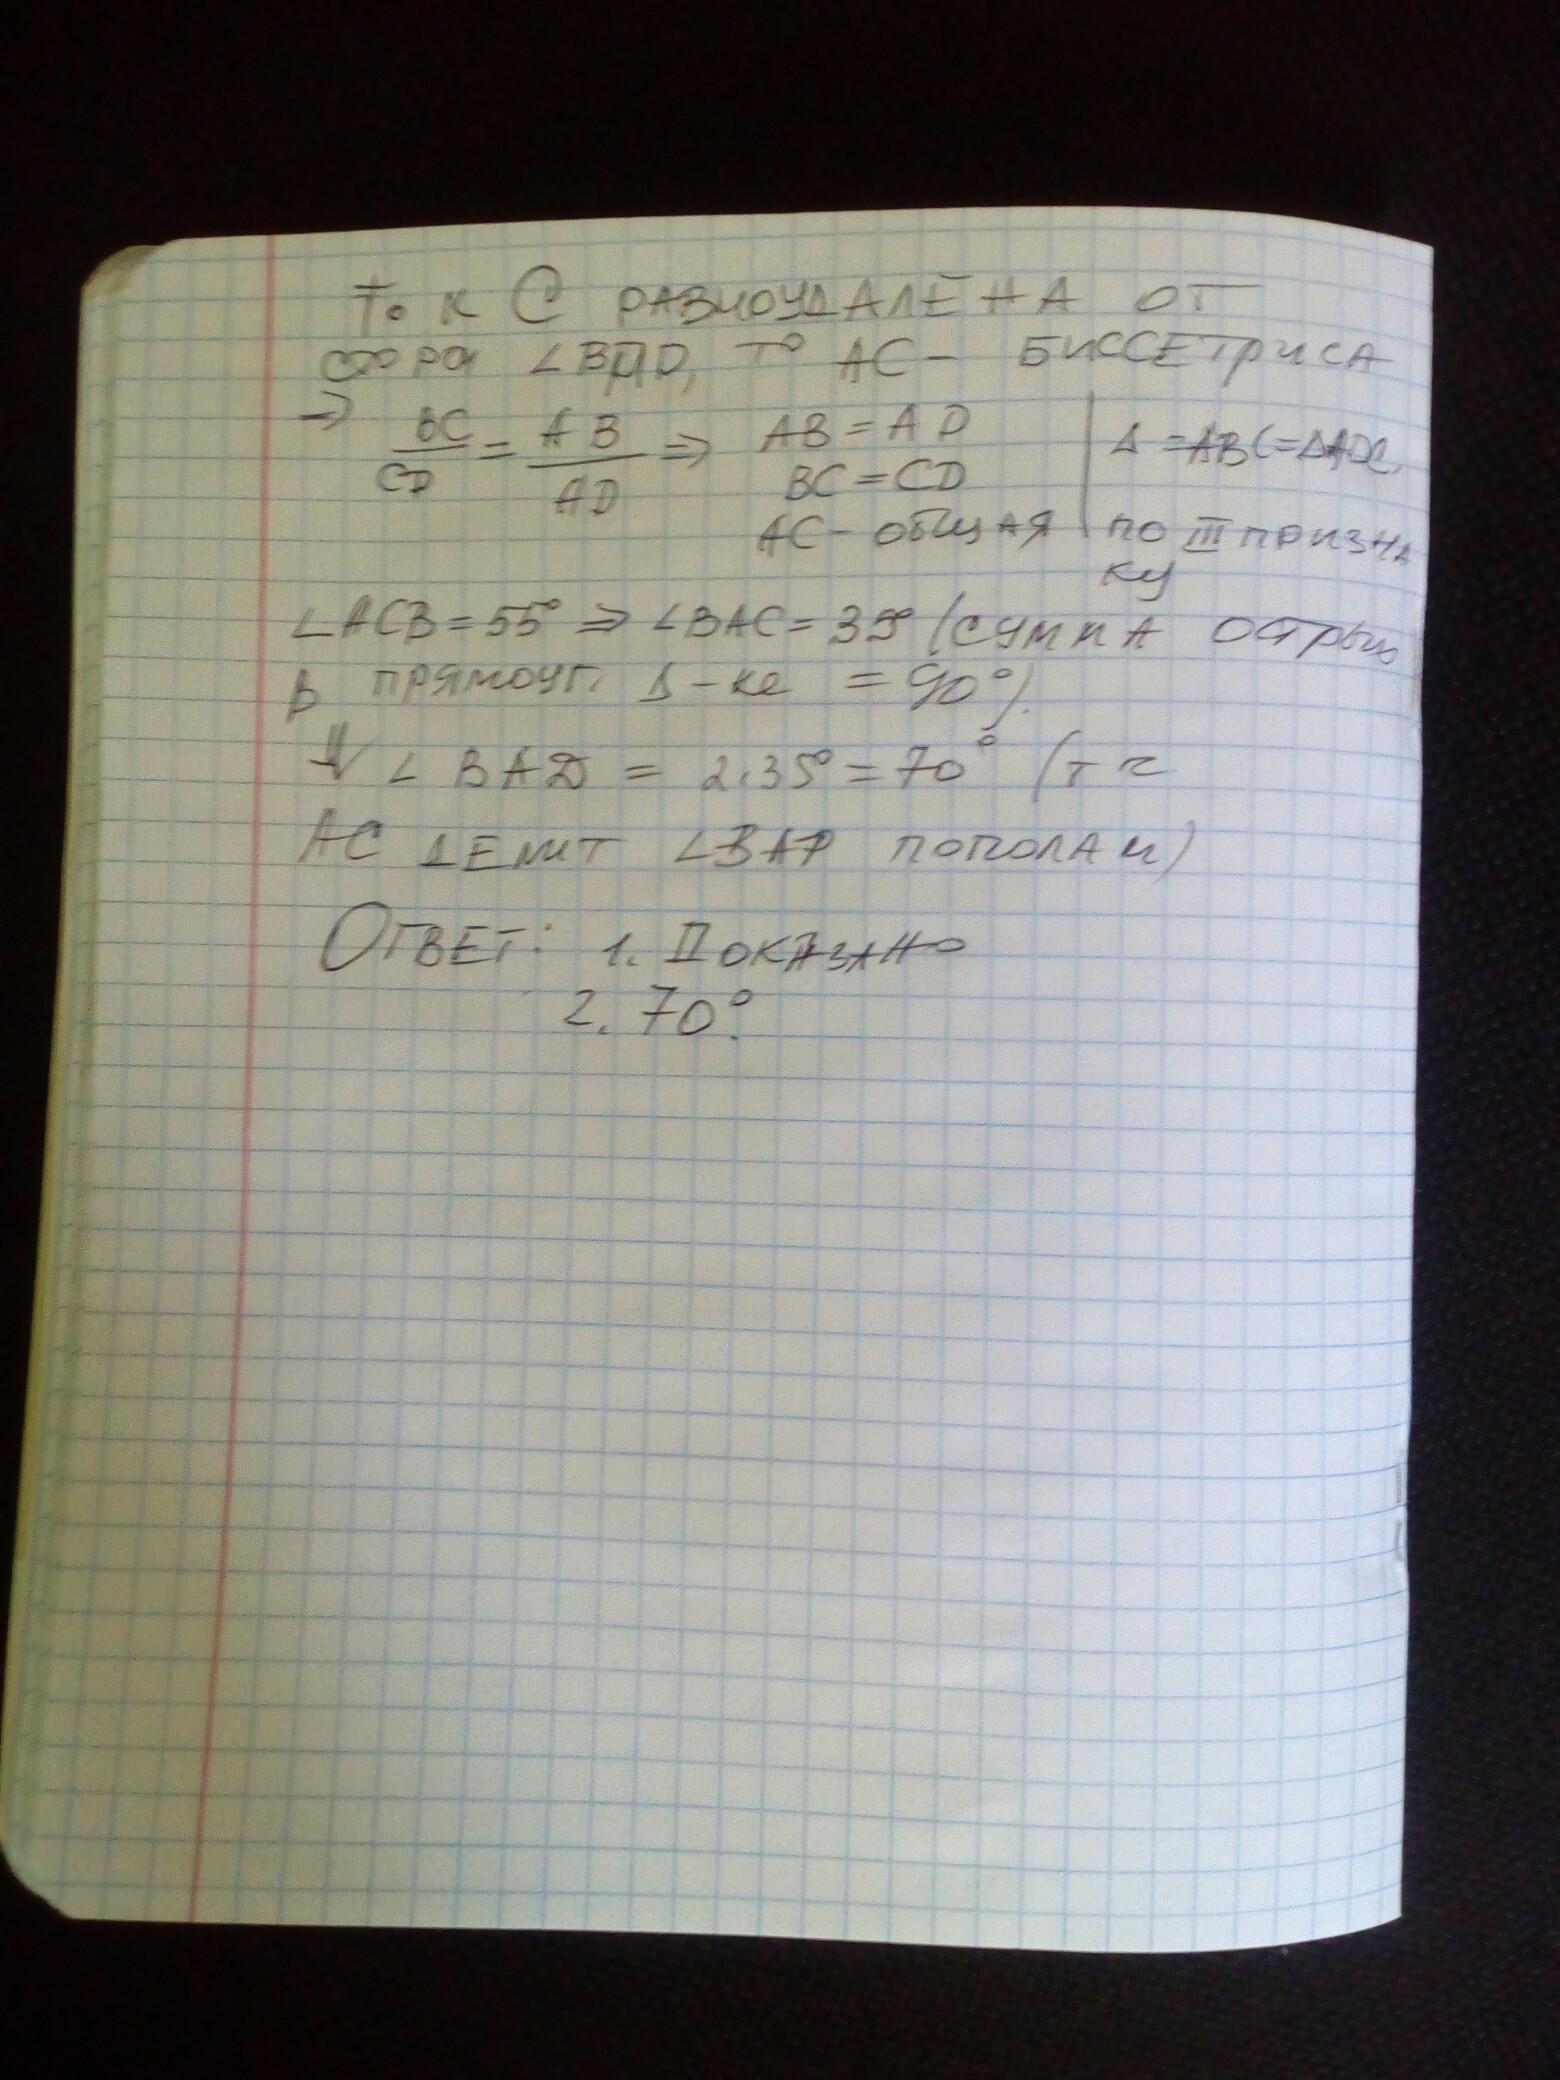 т. к С равноудалёна от
сторон ∠ВАD, то АС - биссетриса
⇒ BC/CD = AB/AD ⇒ AB = AD | Δ = ABC = ΔADC
BC = CD
AC - общая | по III призна
ку
∠ACB = 55° ⇒ ∠BAC = 35° (сумма острых
в прямоуг. Δ-ке = 90°).
⇓ ∠BAD = 2·35° = 70° (т к
AC делит ∠BAD пополам)
Ответ: 1. Показано
2. 70°.